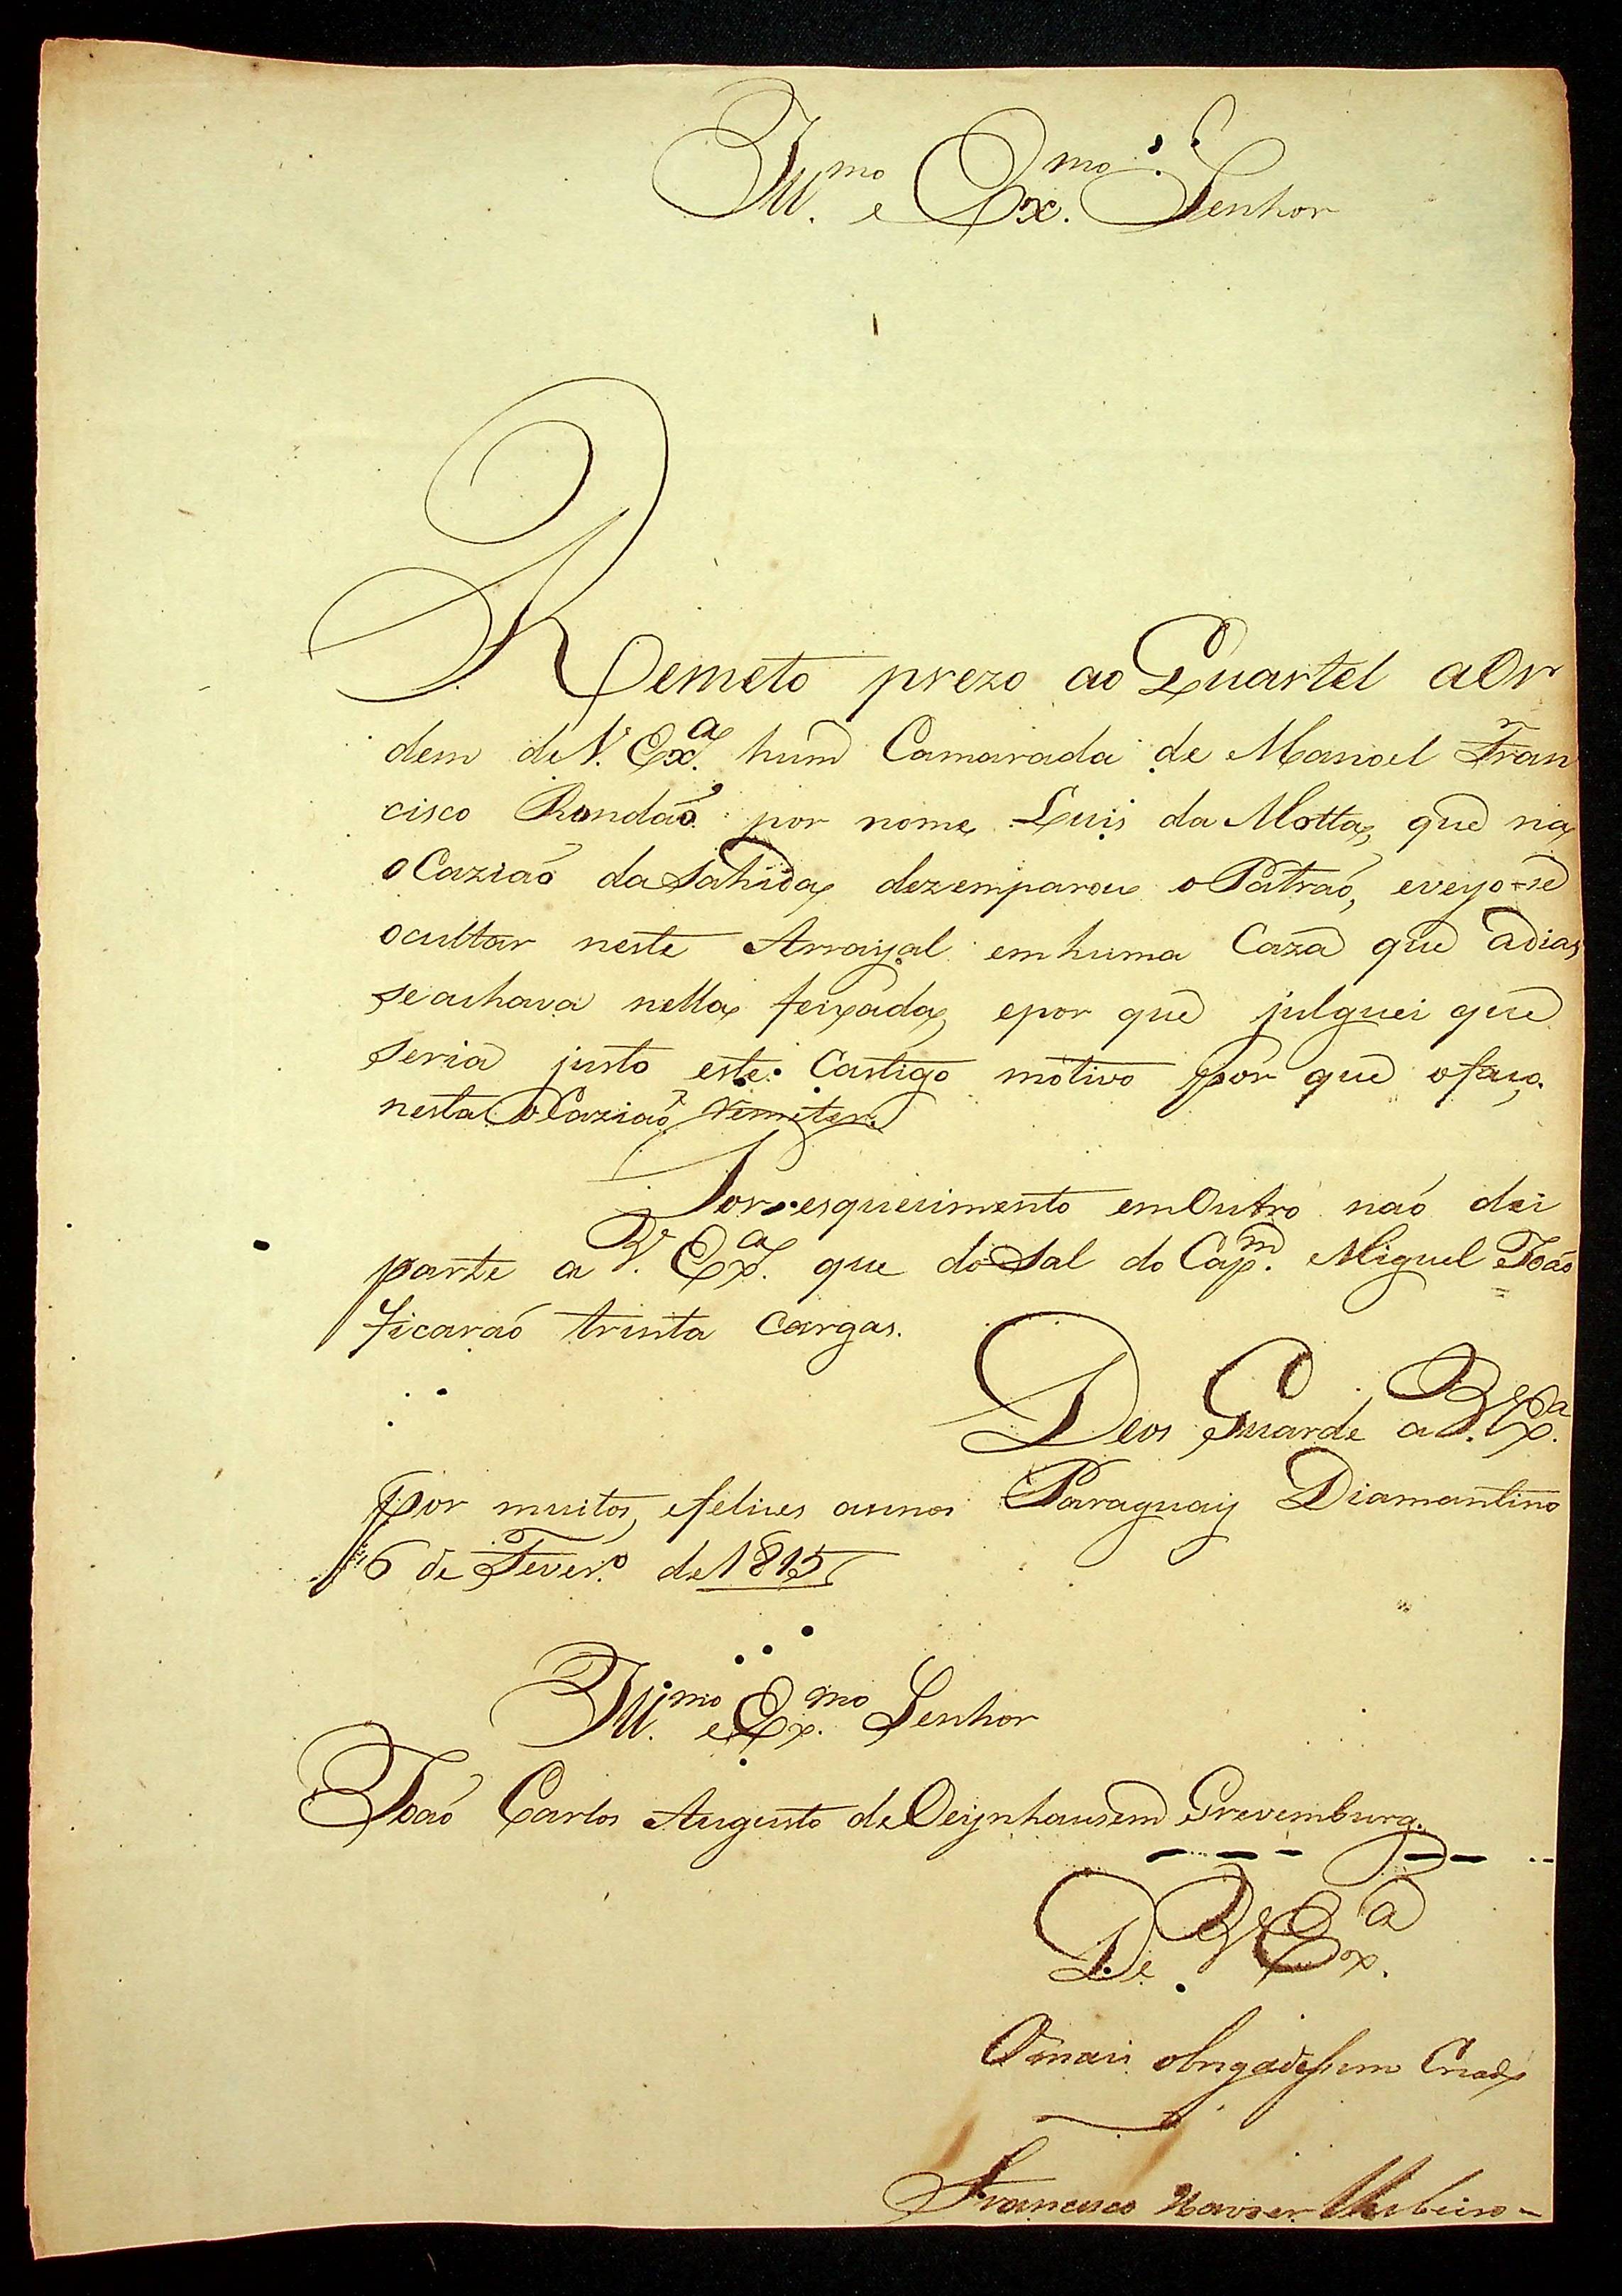 Ill.mo e Ex.mo Senhor
Remeto prezo ao Quartel a Or
dem de V. Ex.a hum Camarada de Manoel Fran
cisco Rondaõ por nome Luis da Motta, que na
oCaziaõ da Sahida dezemparou o Patraõ, e veyo-se
ocultar neste Arrayal em huma Caza que adias
se achava nella feixada, e por que julguei que
seria justo este Castigo motivo por que o faço
nesta oCaziaõ remeter.
Por esquecimento em Outro naõ dei
parte a V. Ex.a que do Sal do Cap.m Miguel Joaõ
ficaraõ trinta Cargas.
Deos Guarde a V. Ex.a
por muitos, e felices annos Paraguay Diamantino
16 de Fever.o de 1815
Ill.mo e Ex.mo Senhor
Joaõ Carlos Augusto de Oeynhausem Grevemburg.
De V. Ex.a
O mais obrigadissimo Criado
Francisco Xavier Ribeiro